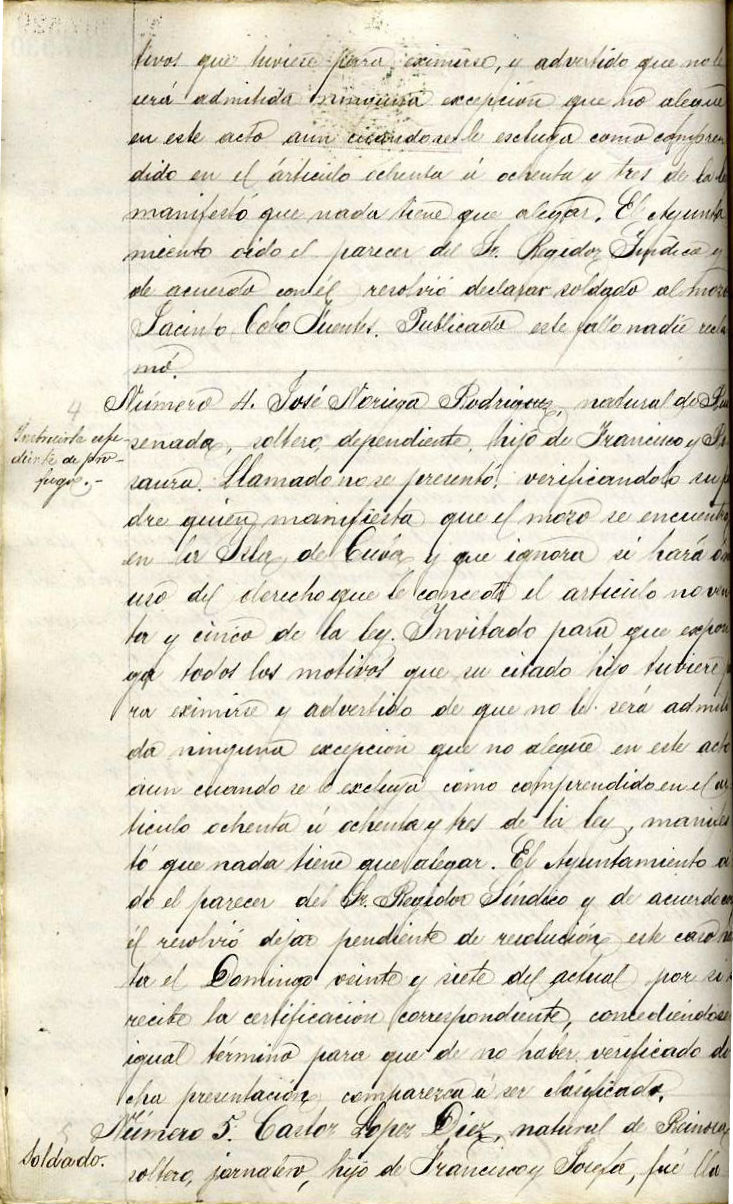 tivos que tuviese para eximirse, y advertido que no le
será admitida ninguna excepción que no alegue
en este acto aun cuando se le escluya como compren
dido en el artículo ochenta ú ochenta y tres de la le
manifestó que nada tiene que alegar. El Ayunta
miento oido el parecer del Sr. Regidor Síndico y
de acuerdo con él resolvió declarar soldado al mozo
Jacinto Cobo Fuentes. Publicado este fallo nadie recla
mó.
4
Número 4. José Noriega Rodriguez, natural de
Instruirle espe
diente de pró-
fugo.-
senada, soltero, dependiente, hijo de Francisco y Ro
saura. Llamado no se presentó, verificandolo su pa
dre quien manifiesta que el mozo se encuentra
en la Isla de Cuva y que ignora si hará ó no
uso del derecho que le concede el artículo noven
ta y cinco de la ley. Invitado para que expon
ga todos los motivos que su citado hijo tuviere p
ra eximirse y advertido de que no le será admiti
da ninguna excepción que no alegue en este acto
aun cuando se le excluya como comprendido en el ar
tículo ochenta ú ochenta y tres de la ley, manifes
tó que nada tiene que alegar. El Ayuntamiento oi
do el parecer del Sr. Regidor Síndico y de acuerdo con
él resolvió dejar pendiente de resolución este caso has
ta el Domingo veinte y siete del actual por si s
recibe la certificación correspondiente, concediéndose
igual término para que de no haber verificado di
cha presentación comparezca á ser clasificado.
5
Número 5. Castor Lopez Diez, natural de Reinosa,
Soldado.
soltero, jornalero, hijo de Francisco y Josefa, fué lla